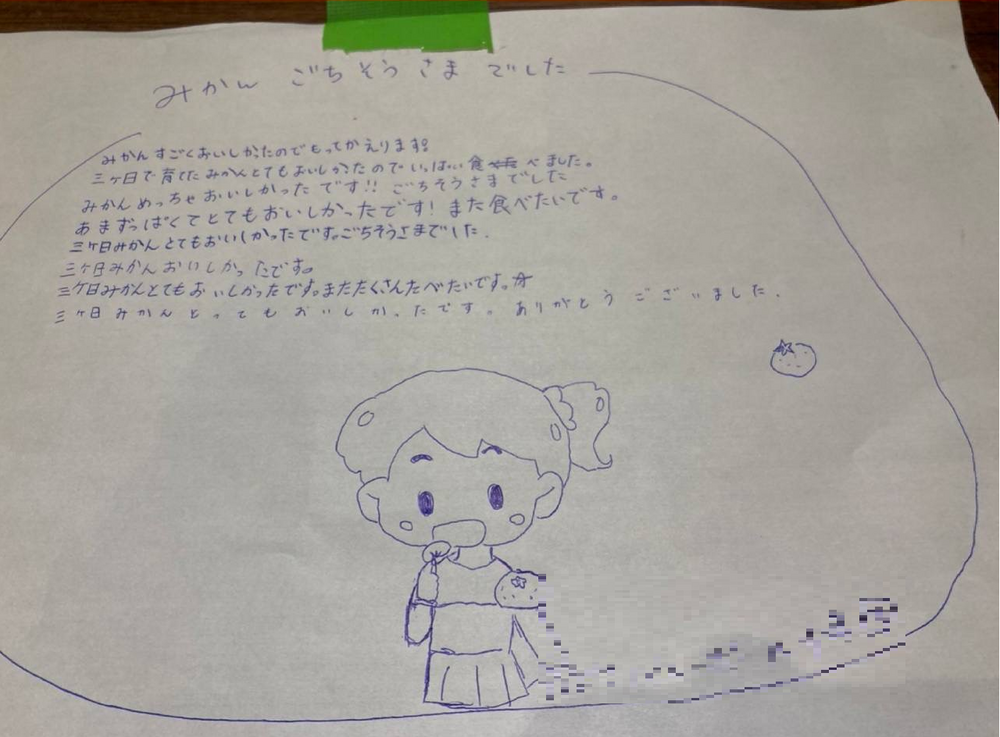 みかん ごちそうさま でした
みかんすごくおいしかったのでもってかえります。
三ヶ日で育てたみかんとてもおいしかったのでいっぱい食べました。
みかんめっちゃおいしかったです!!ごちそうさまでした
あまずっぱくてとてもおいしかったです!また食べたいです。
三ヶ日みかんとてもおいしかったです。ごちそうさまでした.
三ヶ日みかんおいしかったです。
三ケ日みかんとてもおいしかったです。まただくさんたべたいです。☆
三ヶ日みかんとってもおいしかったです。ありがとうございました.